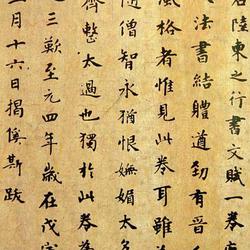 陸柬之行書文賦一卷
法書結體遒勁有晉
風格者惟見此卷耳雖
隋僧智永猶恨嫵媚太多
齊整太過也獨於此卷
三歎至元四年歲在戊
月十六日揭傒斯跋